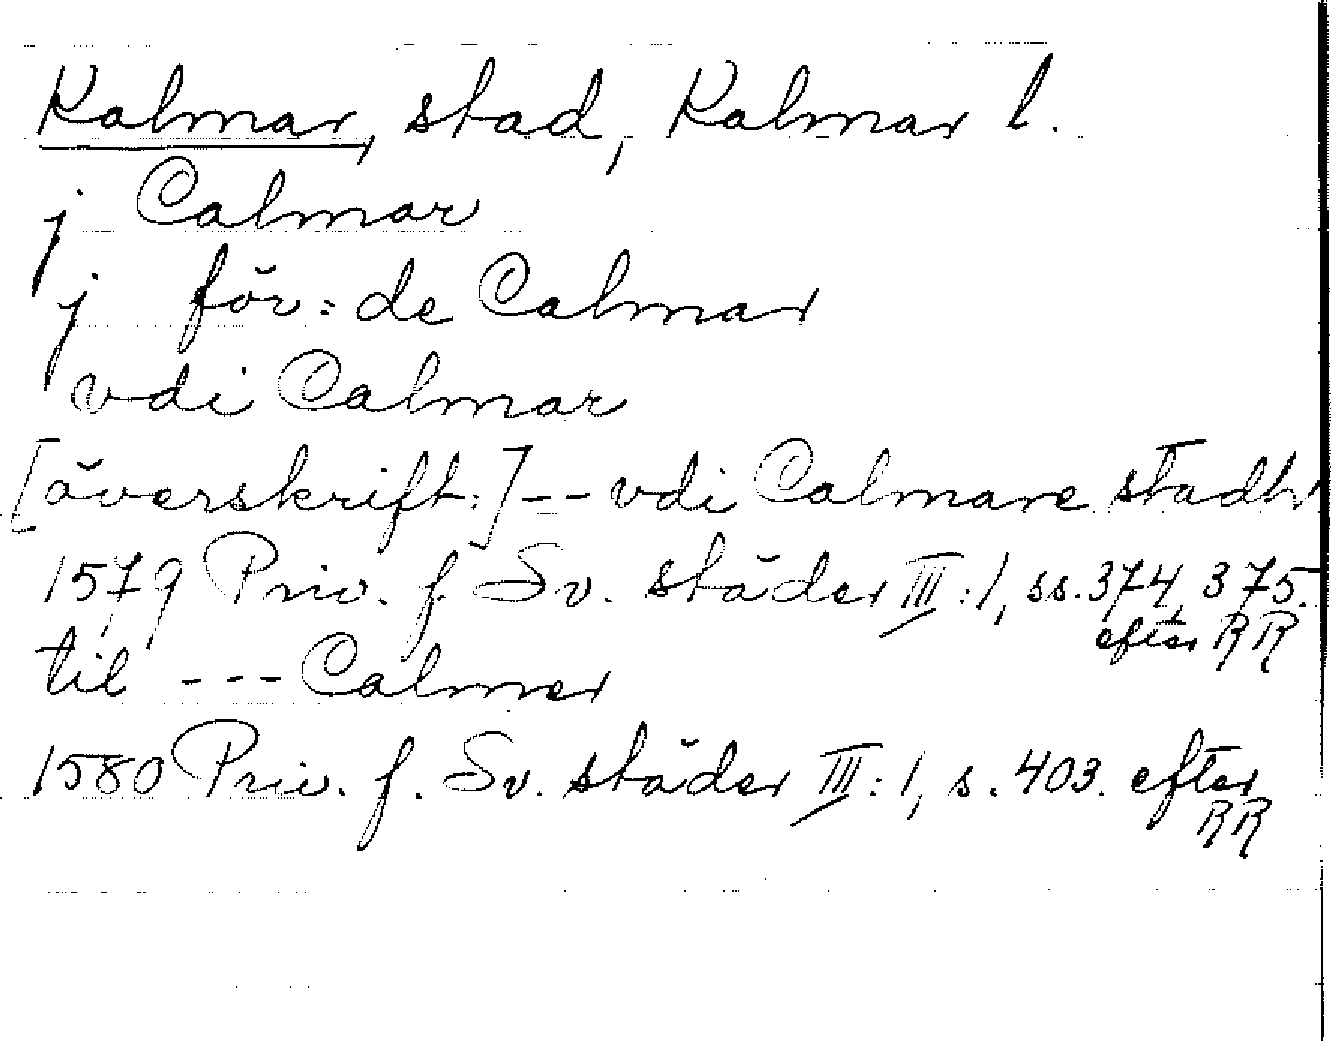 Kalmar, stad, Kalmar l.
j Calmar
j för=de Calmar
vdi Calmar
[överskrift:] -- vdi Calmare stadh
1579 Priv. f. Sv. städer III:1, ss. 374, 375.
efter RR
til --- Calmer
1580 Priv. f. Sv. städer III:1, s. 403. efter
RR